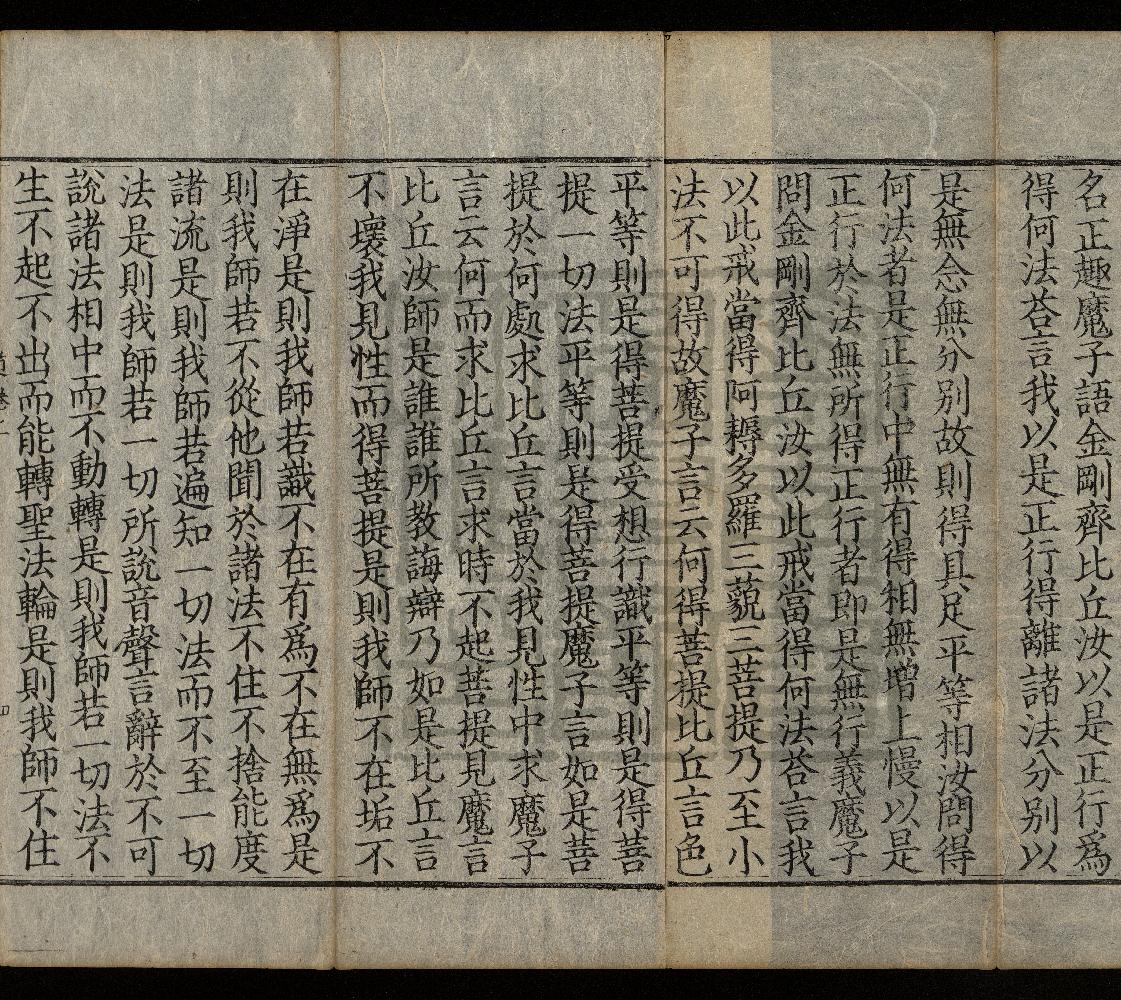 名正趣魔子語金剛齊比丘汝以是正行爲
得何法荅言我以是正行得離諸法分别以
是無念無分别故則得具足平等相汝問得
何法者是正行中無有得相無增上慢以是
正行於法無所得正行者即是無行義魔子
問金剛齊比丘汝以此戒當得何法荅言我
以此戒當得阿耨多羅三藐三菩提乃至小
法不可得故魔子言云何得菩提比丘言色
平等則是得菩提受想行識平等則是得菩
提一切法平等則是得菩提魔子言如是菩
提於何處求比丘言當於我見性中求魔子
言云何而求比丘言求時不起菩提見魔言
比丘汝師是誰誰所教誨辯乃如是比丘言
不壞我見性而得菩提是則我師不在垢不
在淨是則我師若識不在有爲不在無爲是
則我師若不從他聞於諸法不住不捨能度
諸流是則我師若遍知一切法而不至一切
法是則我師若一切所說音聲言辭於不可
說諸法相中而不動轉是則我師若一切法不
生不起不出而能轉聖法輪是則我師不住